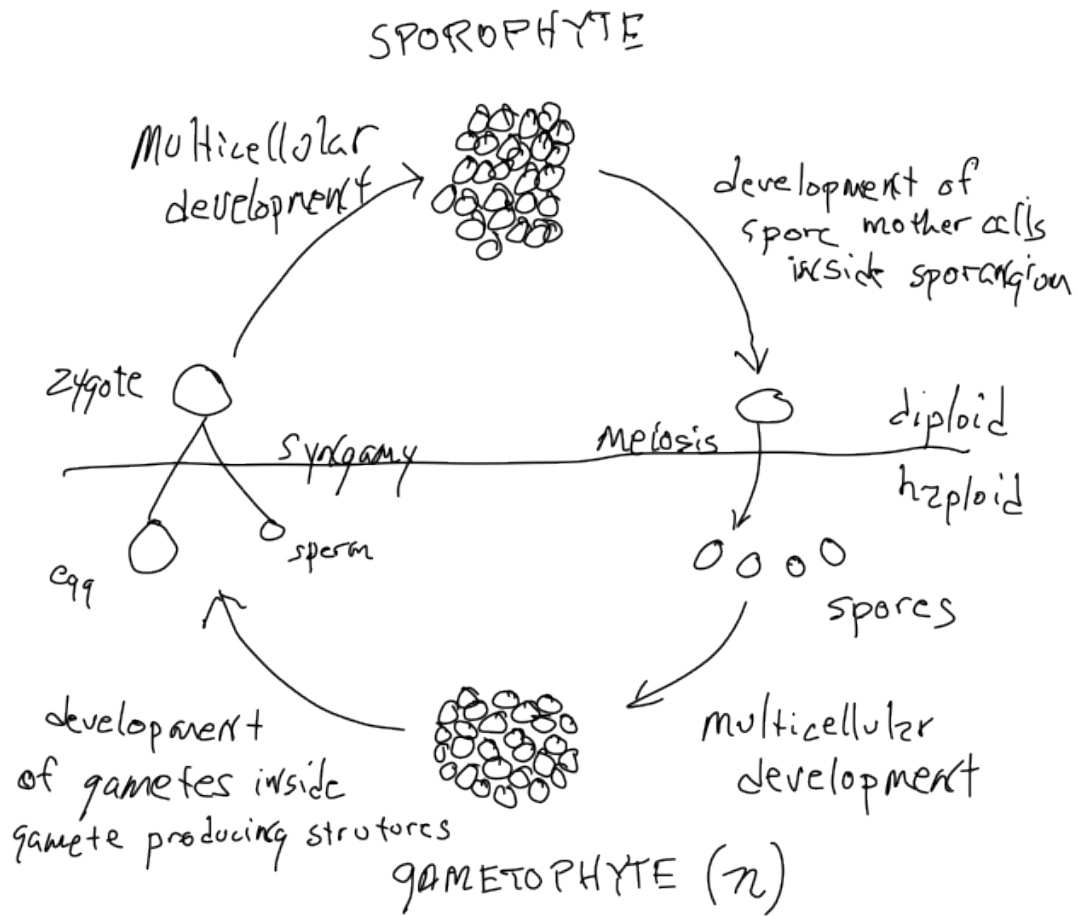 SPOROPHYTE
Multicellular
development
development of
spore mother cells
inside sporangium
zygote
syngamy
meiosis
diploid
haploid
egg
sperm
spores
development
of gametes inside
gamete producing strutures
multicellular
development
GAMETOPHYTE (n)